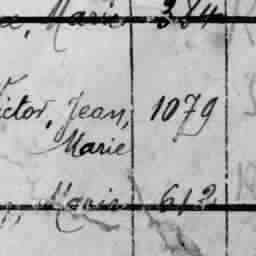 , Marie 384
Victor, Jean, 1079
Marie
, Marie 612